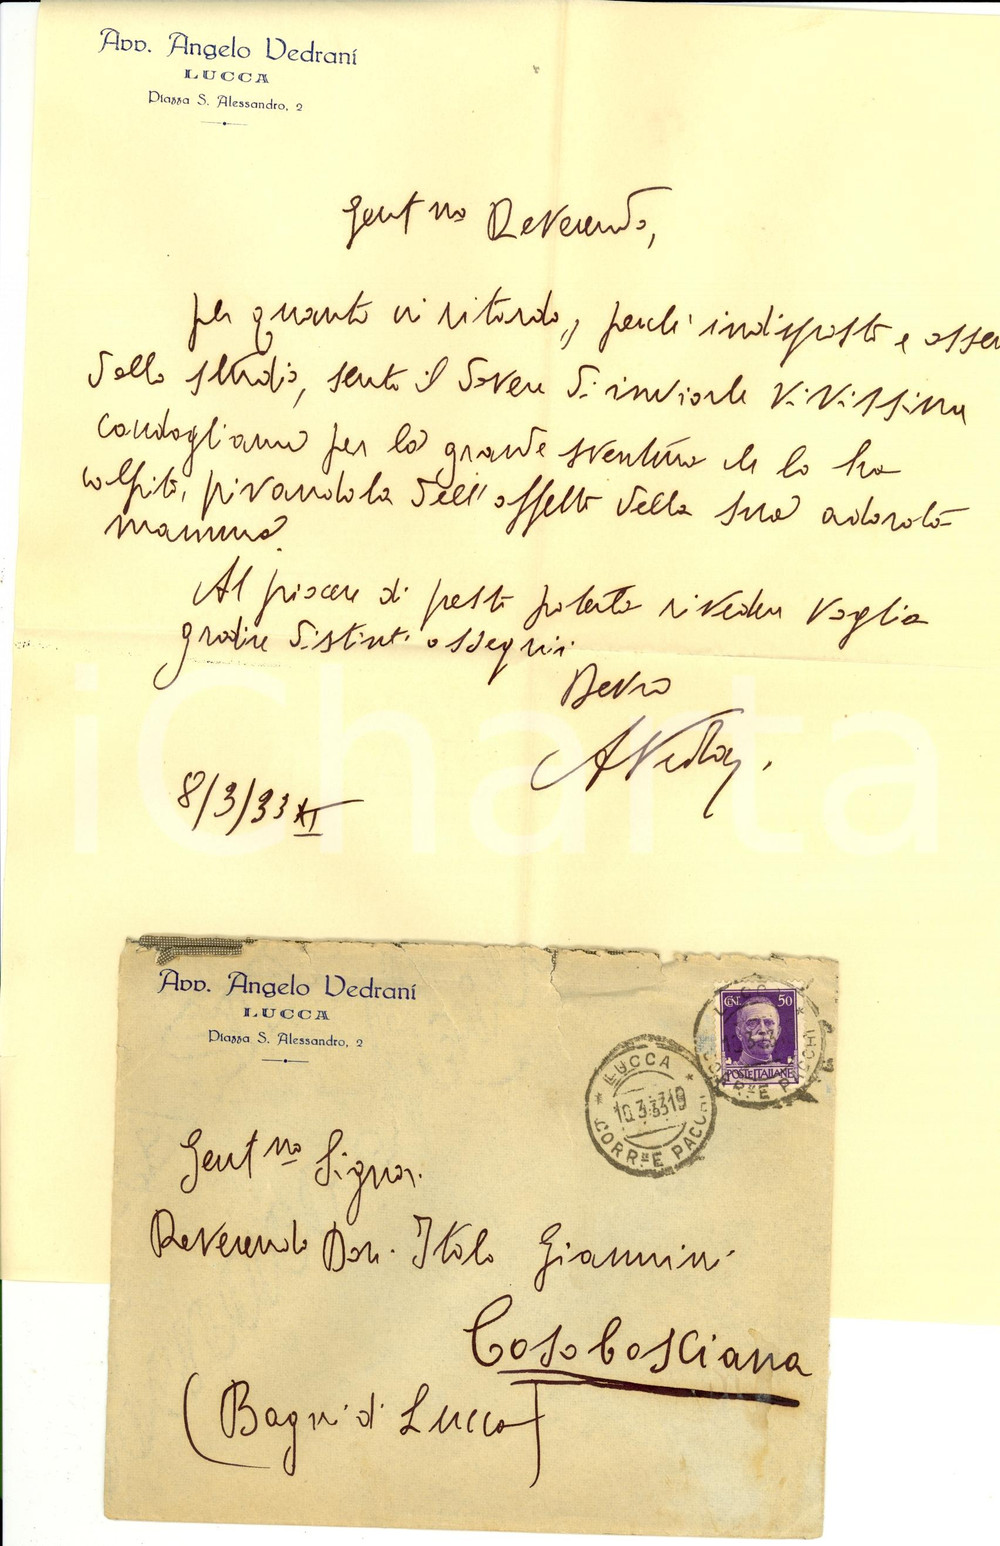 Avv. Angelo Vedrani
LUCCA
Piazza S. Alessandro, 2
Gent.mo Reverendo,
per quanto in ritardo, perché indisposto e assen
dallo studio, sento il dovere di inviarle vivissime
condoglianze per la grande sventura che lo ha
colpito, privandola dell'affetto della sua adorata
mamma.
Al piacere di presto poterla rivedere voglia
gradire distinti ossequi
Devmo
AVedrani
8/3/33 XI
iCharta
Avv. Angelo Vedrani
LUCCA
Piazza S. Alessandro, 2
CENT. 50
POSTE ITALIANE
LUCCA
CORR.ZE PACCHI
LUCCA
10.3.33 19
CORR.ZE PACCHI
Gent.mo Signor.
Reverendo Don. Italo Giannini
Casabasciana
(Bagni di Lucca)